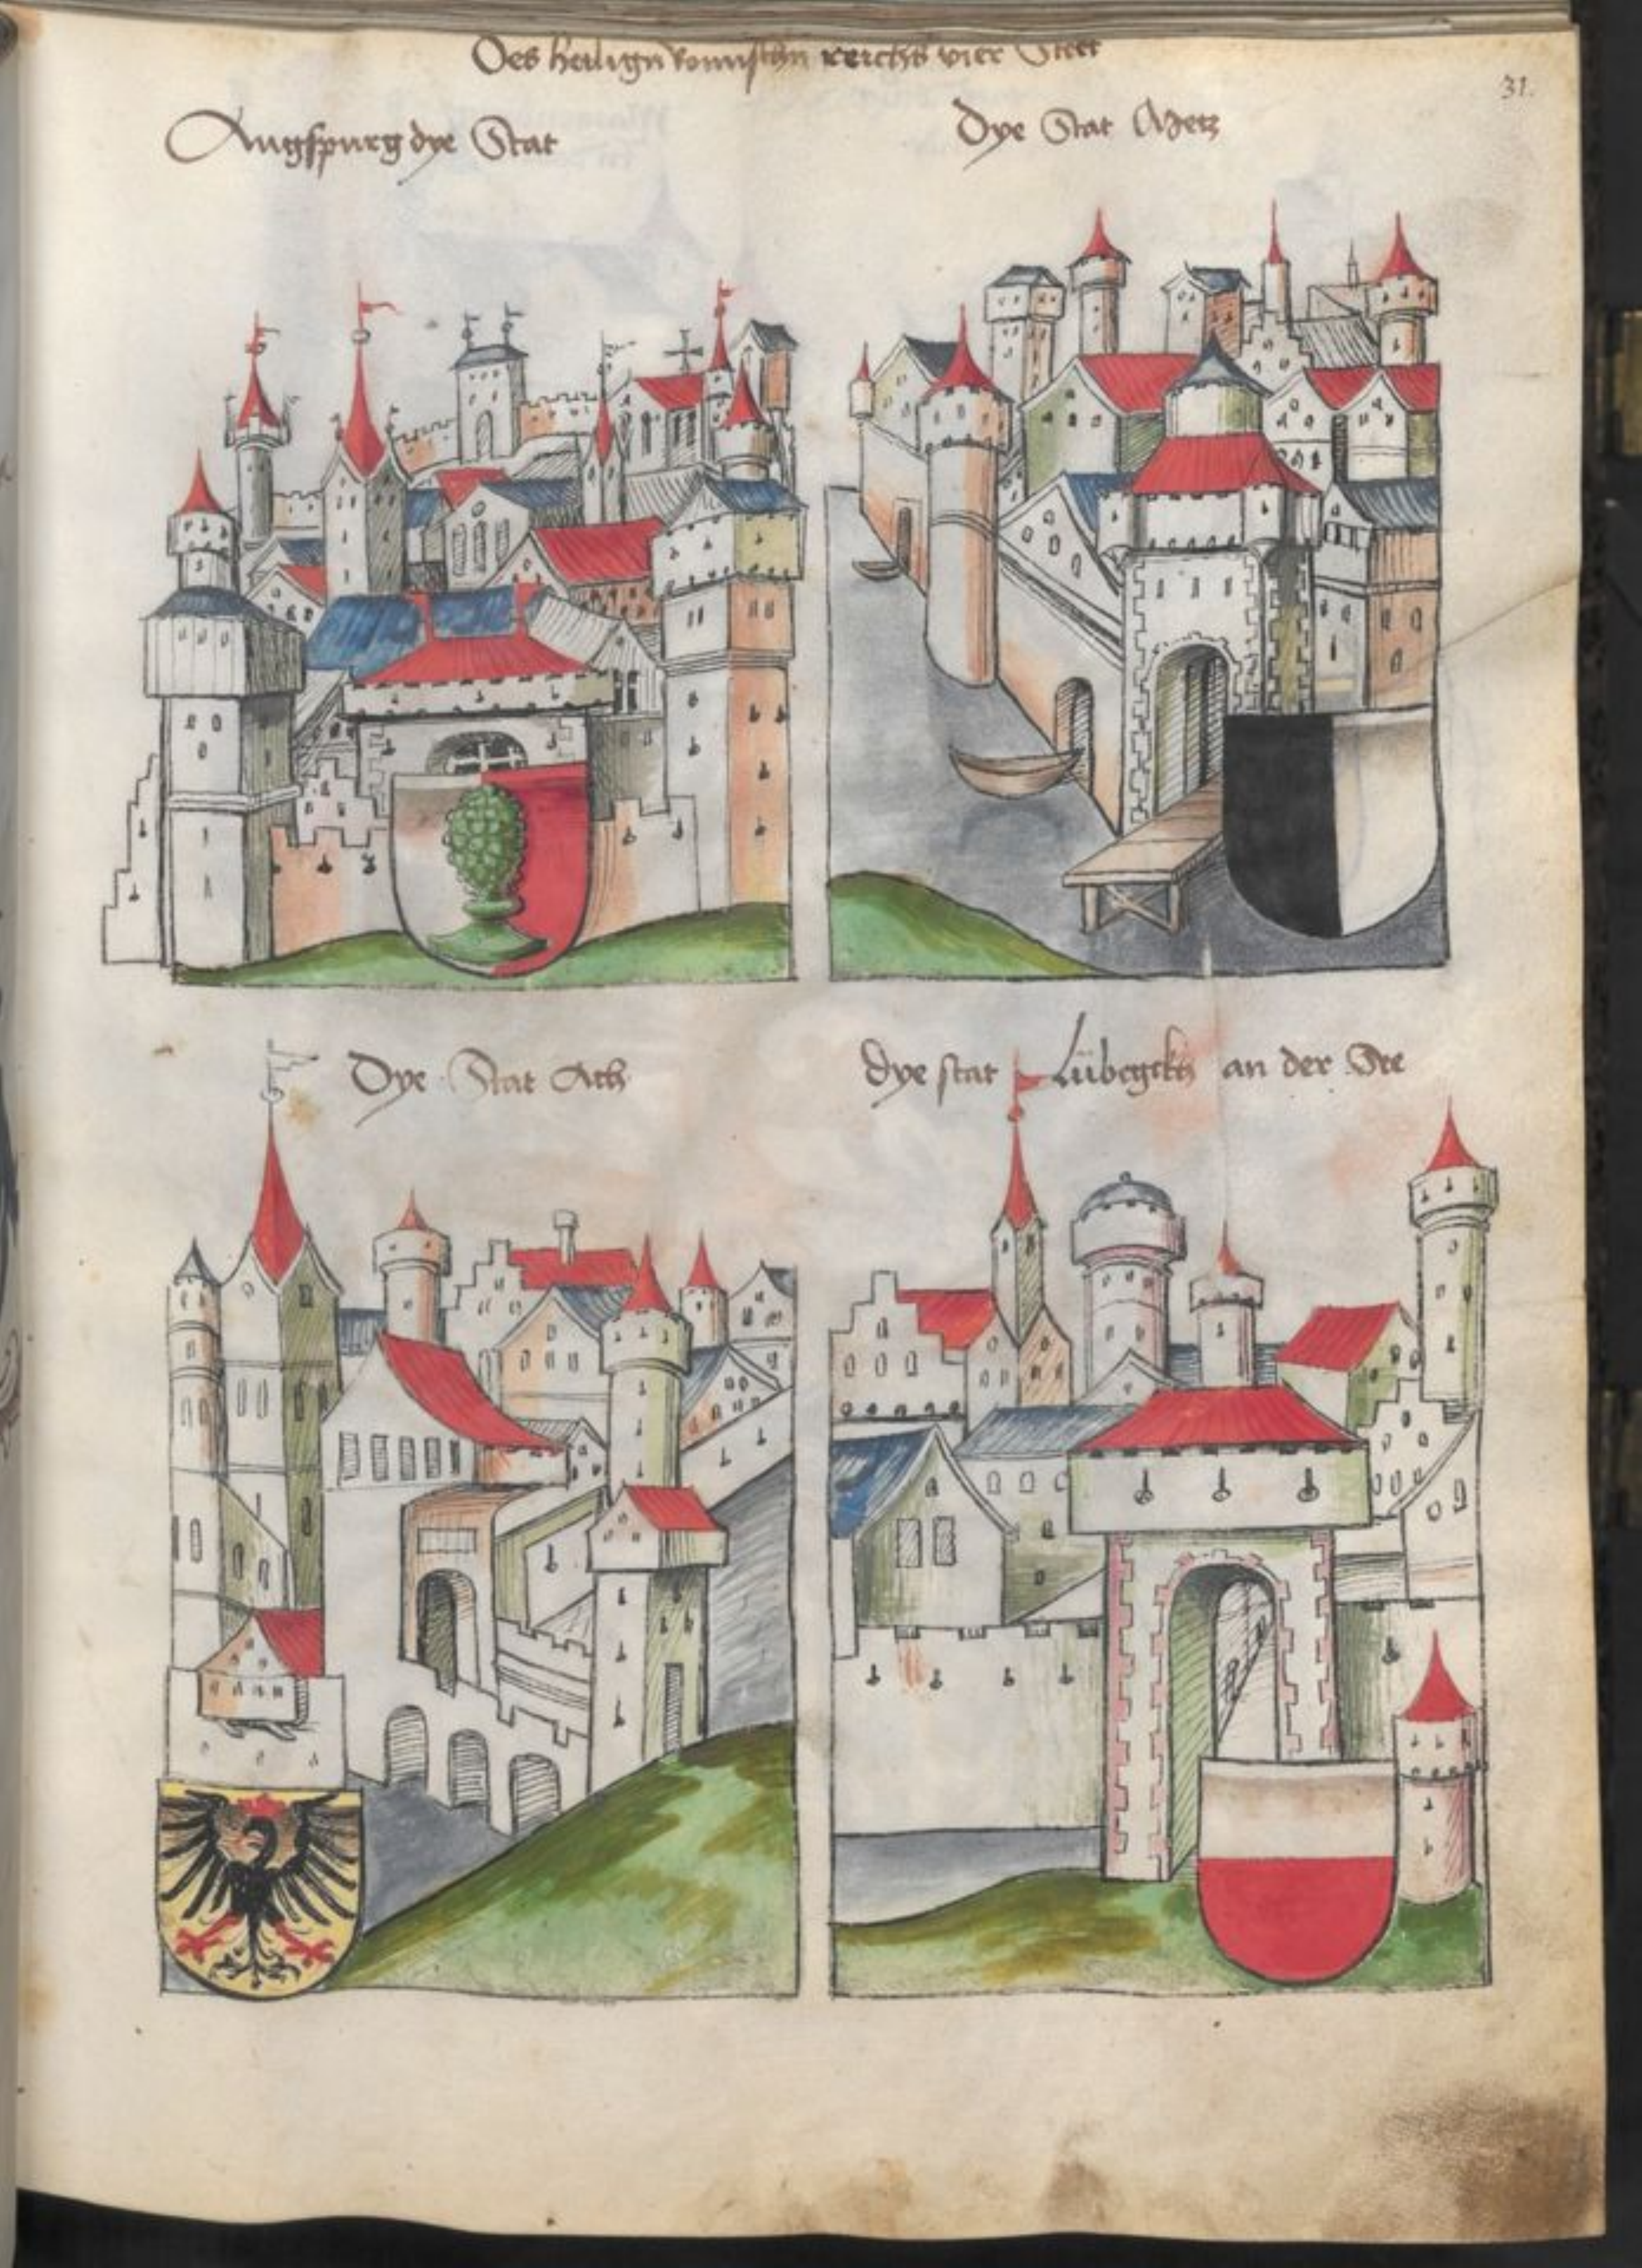 Des heilign Romischn reichs vier Stett
31.
Augspurg dye Stat
Dye Stat Metz
Dye Stat Ach
dye stat Lübegckh an der See